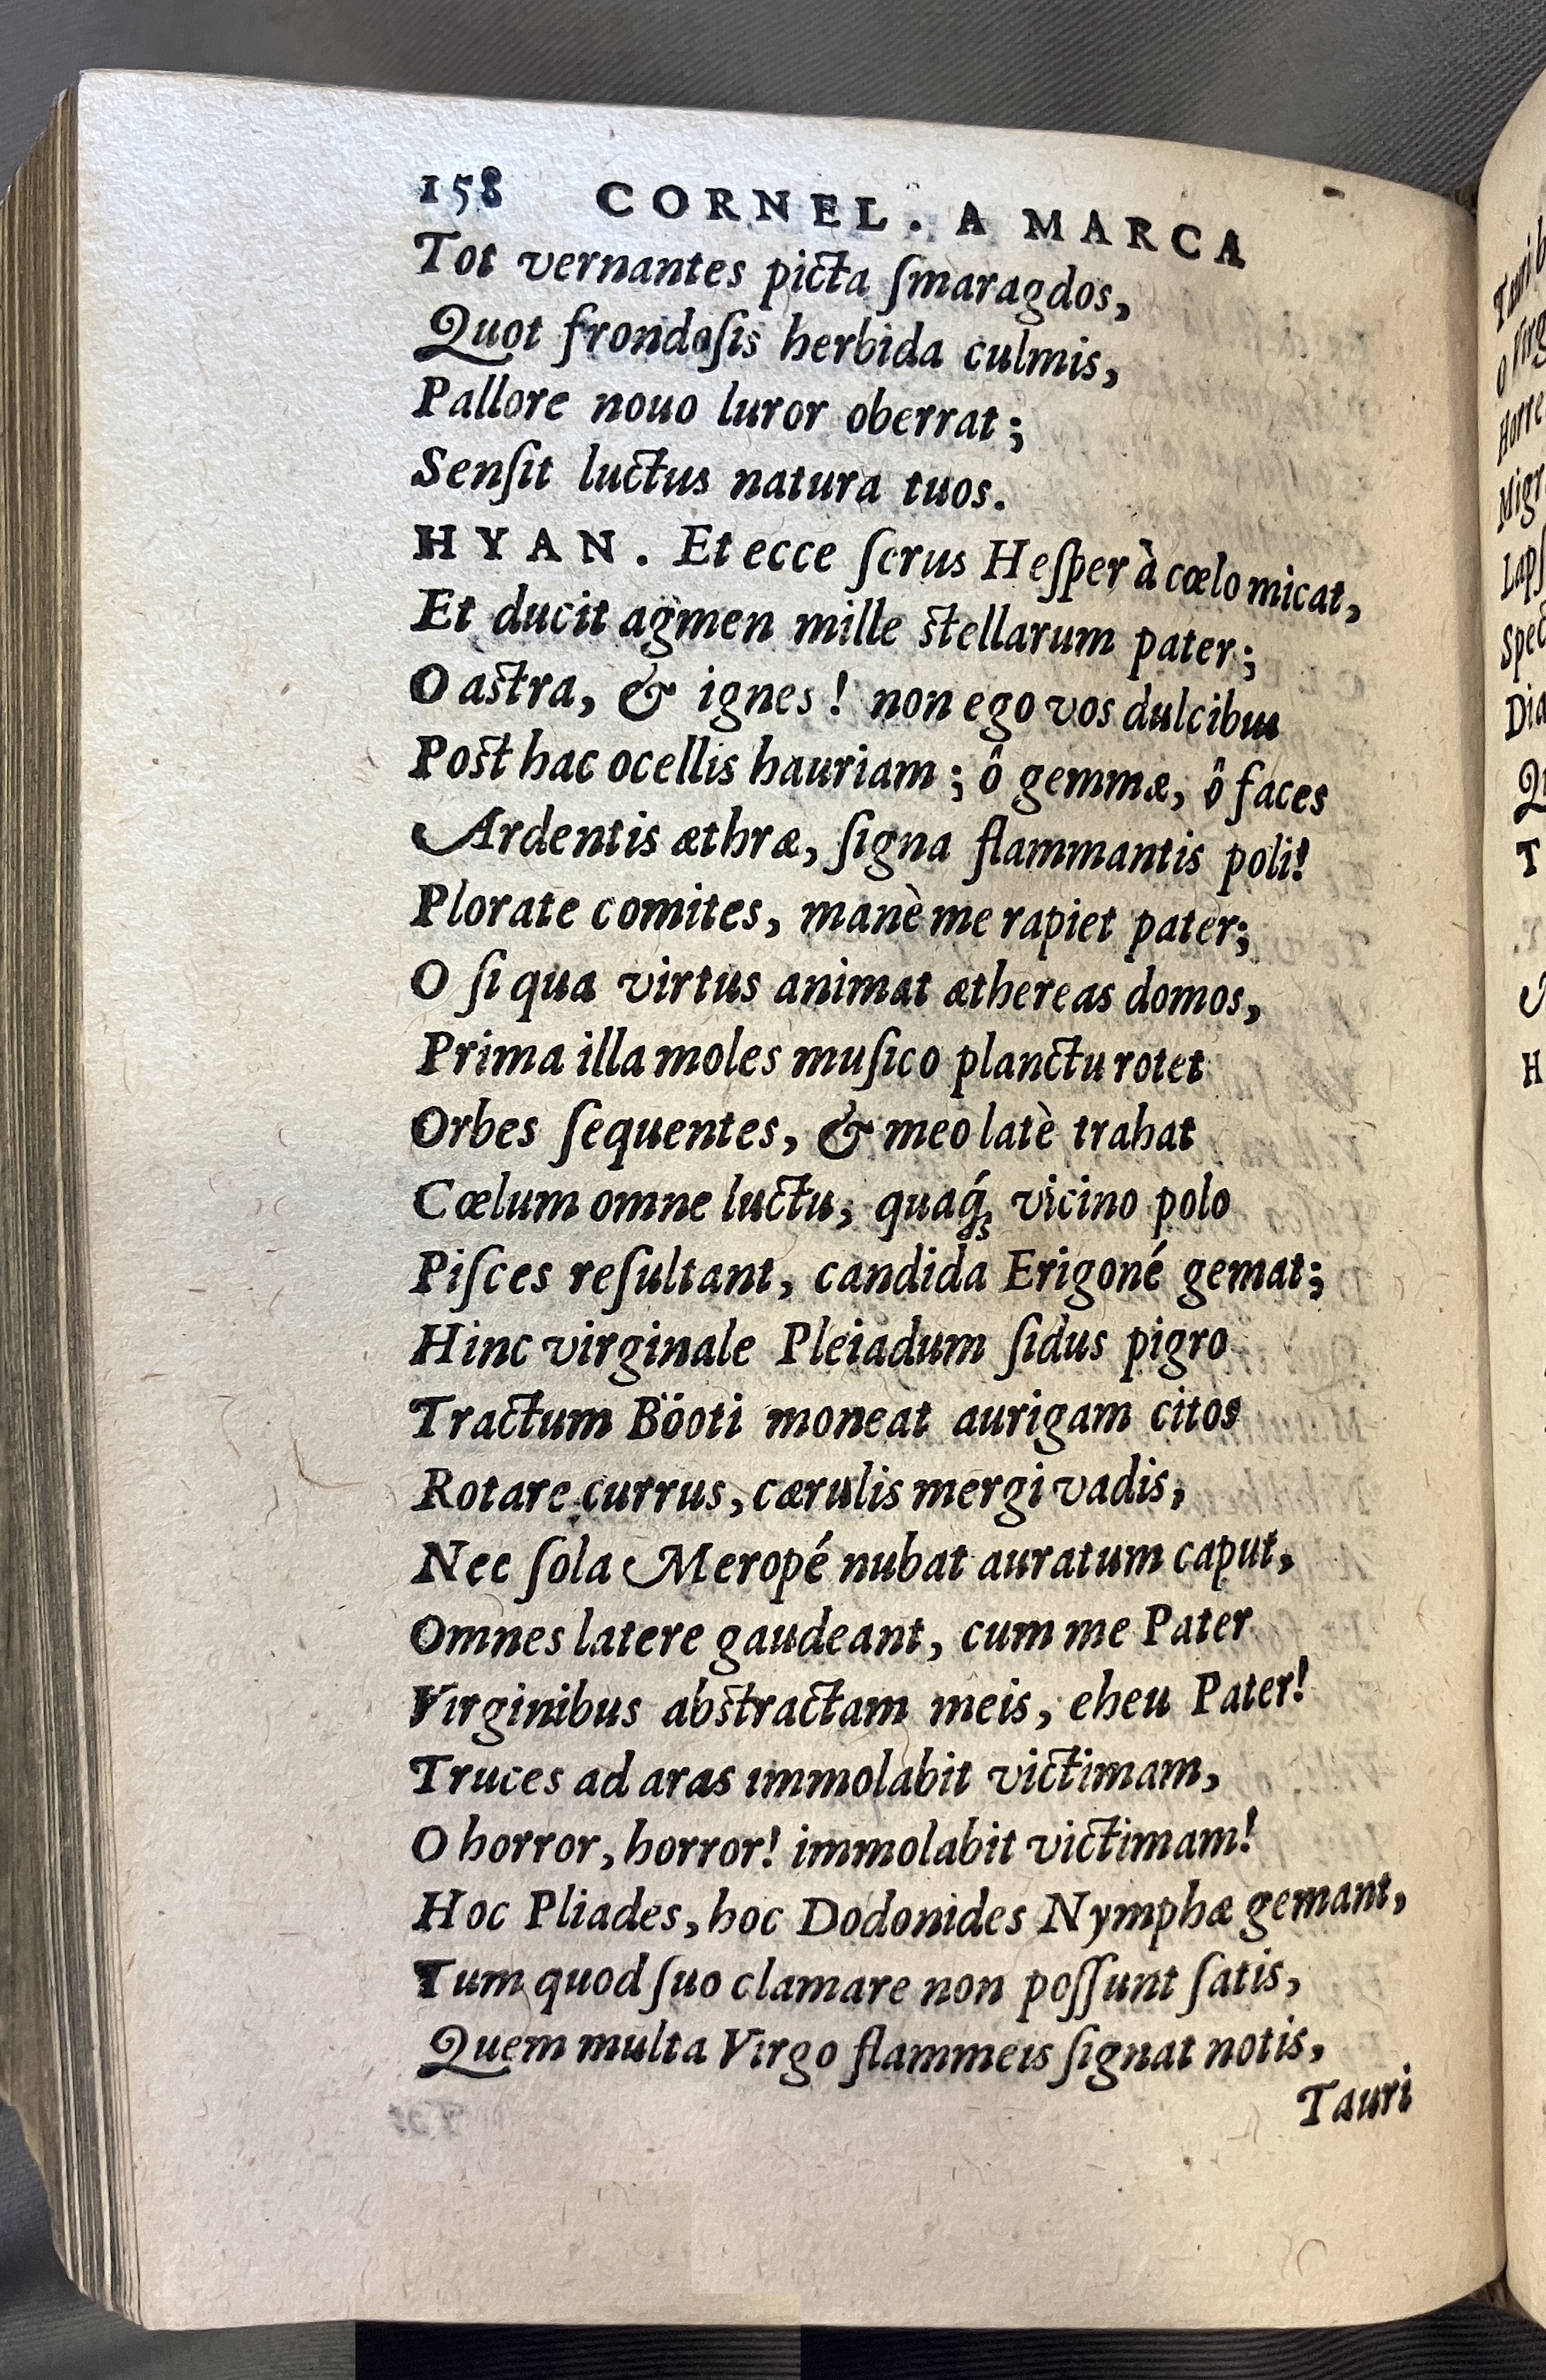 158 CORNEL. A MARCA
Tot vernantes picta ſmaragdos,
Quot frondoſis herbida culmis,
Pallore nouo luror oberrat;
Senſit luctus natura tuos.
HYAN. Et ecce ſerus Heſper à cœlo micat,
Et ducit agmen mille stellarum pater;
O astra, & ignes! non ego vos dulcibus
Post hac ocellis hauriam; ô gemmæ, ô faces
Ardentis æthræ, ſigna flammantis poli!
Plorate comites, manè me rapiet pater;
O ſi qua virtus animat æthereas domos,
Prima illa moles muſico planctu rotet
Orbes ſequentes, & meo latè trahat
Cœlum omne luctu, quaq́ꝫ vicino polo
Piſces reſultant, candida Erigoné gemat;
Hinc virginale Pleiadum ſidus pigro
Tractum Böoti moneat aurigam citos
Rotare currus, cærulis mergi vadis,
Nec ſola Meropé nubat auratum caput,
Omnes latere gaudeant, cum me Pater
Virginibus abstractam meis, eheu Pater!
Truces ad aras immolabit victimam,
O horror, horror! immolabit victimam!
Hoc Pliades, hoc Dodonides Nymphæ gemant,
Tum quod ſuo clamare non poſſunt ſatis,
Quem multa Virgo flammeis ſignat notis,
Tauri
O Virg
Horre
Migr
Lapſ
Spec
Dia
T
H